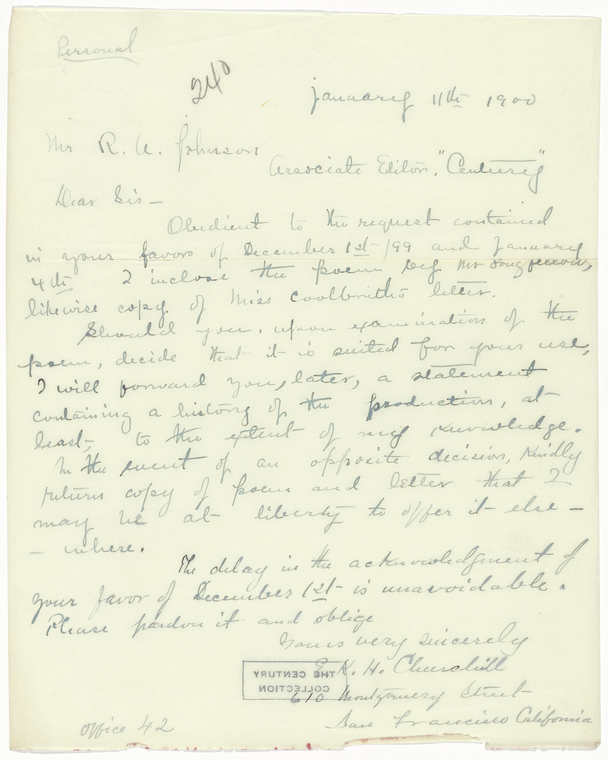 Personal
240
January 11th 1900
Mr R. U. Johnson
Associate Editor, "Century"
Dear Sir -
Obedient to the request contained
in your favors of December 1st /99 and January
4th I inclose the poem by Mr
likewise copy of Miss Coolbrith's letter.
Should you, upon examination of the
poem, decide that it is suited for your use,
I will forward you, later, a statement
containing a history of the production, at
least, to the extent of my knowledge.
In the event of an opposite decision, kindly
return copy of poem and letter that I
may be at liberty to offer it else -
- where.
The delay in the acknowledgment of
your favor of December 1st is unavoidable.
Please pardon it and oblige
Yours very sincerely
E. K. H. Churchill
THE CENTURY
COLLECTION
610 Montgomery Street
San Francisco California
Office 42